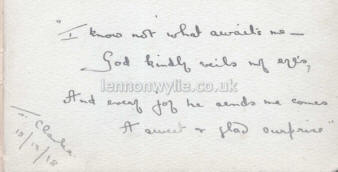 "I know not what awaits me —
God kindly veils my eyes,
lennonwylie.co.uk
And every joy he sends me comes
A sweet & glad surprise"
Clarke